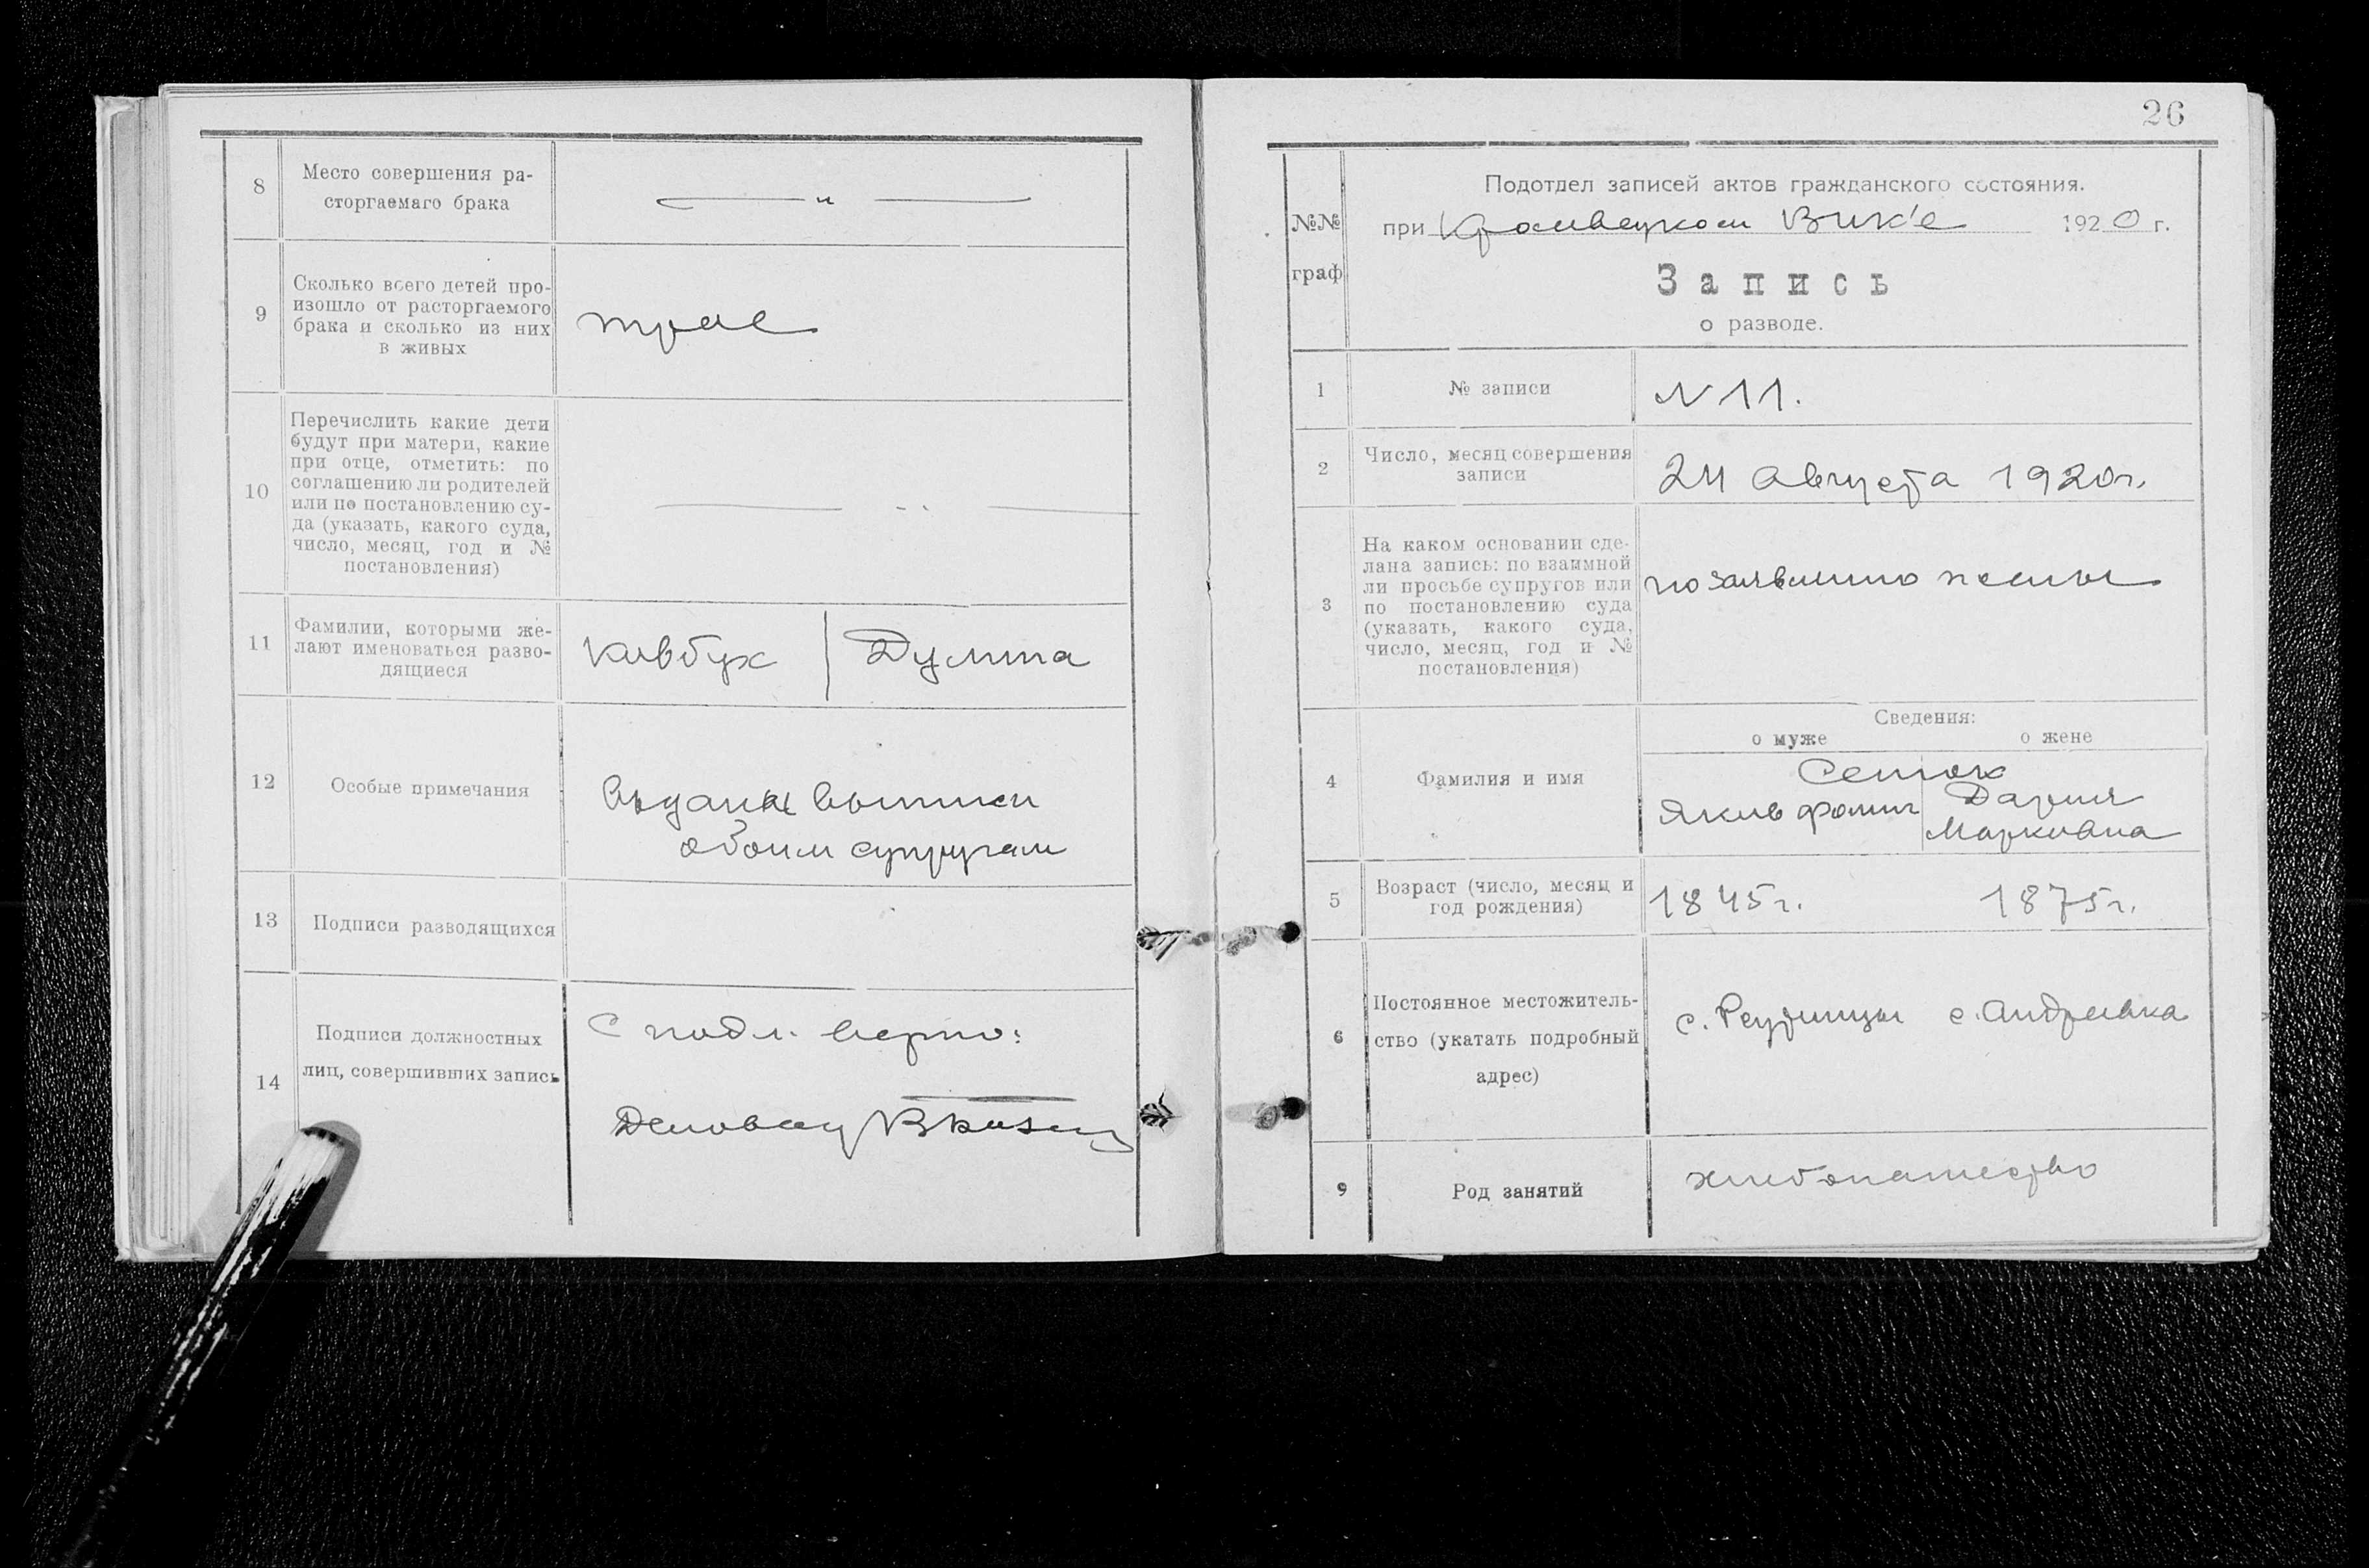 8
Место совершения ра-
сторгаемаго брака
— „ —
9
Сколько всего детей про-
изошло от расторгаемого
брака и сколько из них
в живых
трое
10
Перечислить какие дети
будут при матери, какие
при отце, отметить: по
соглашению ли родителей
или по постановлению су-
да (указать, какого суда,
число, месяц, год и №
постановления)
— „ —
11
Фамилии, которыми же-
лают именоваться разво-
дящиеся
Ковбух | Думма
12
Особые примечания
Выданы выписи
обоим супругам
13
Подписи разводящихся
14
Подписи должностных
лиц, совершивших запись
С подл. верно:
26
№№
граф
Подотдел записей актов гражданского состояния.
при Кролевецком Вик'е 1920 г.
Запись
о разводе.
1
№ записи
N 11.
2
Число, месяц совершения
записи
24 Августа 1920 г.
3
На каком основании сде-
лана запись: по взаимной
ли просьбе супругов или
по постановлению суда
(указать, какого суда,
число, месяц, год и №
постановления)
по заявлению жены
Сведения:
о муже о жене
4
Фамилия и имя
Яков Фомич
Дария
Марковна
5
Возраст (число, месяц и
год рождения)
1845 г. 1875 г.
6
Постоянное местожитель-
ство (укатать подробный
адрес)
с. Реутинцы с. Андреевка
9
Род занятий
хлебопашество